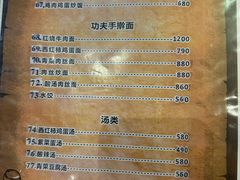 67.鸡肉鸡蛋炒饭 680
功夫手擀面
68.红烧牛肉面 1200
69.西红柿鸡蛋面 790
70.青菜肉丝面 880
71.肉丝炒面 880
72.酸汤肉丝面 860
73.水饺 560
汤类
74.西红柿鸡蛋汤 580
75.紫菜蛋汤 490
76.酸辣汤 580
77.青菜豆腐汤 560